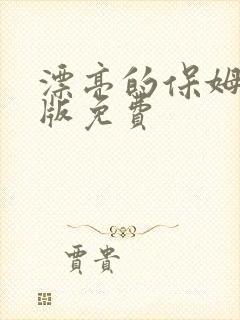 漂亮的保姆
版免費
賈貴